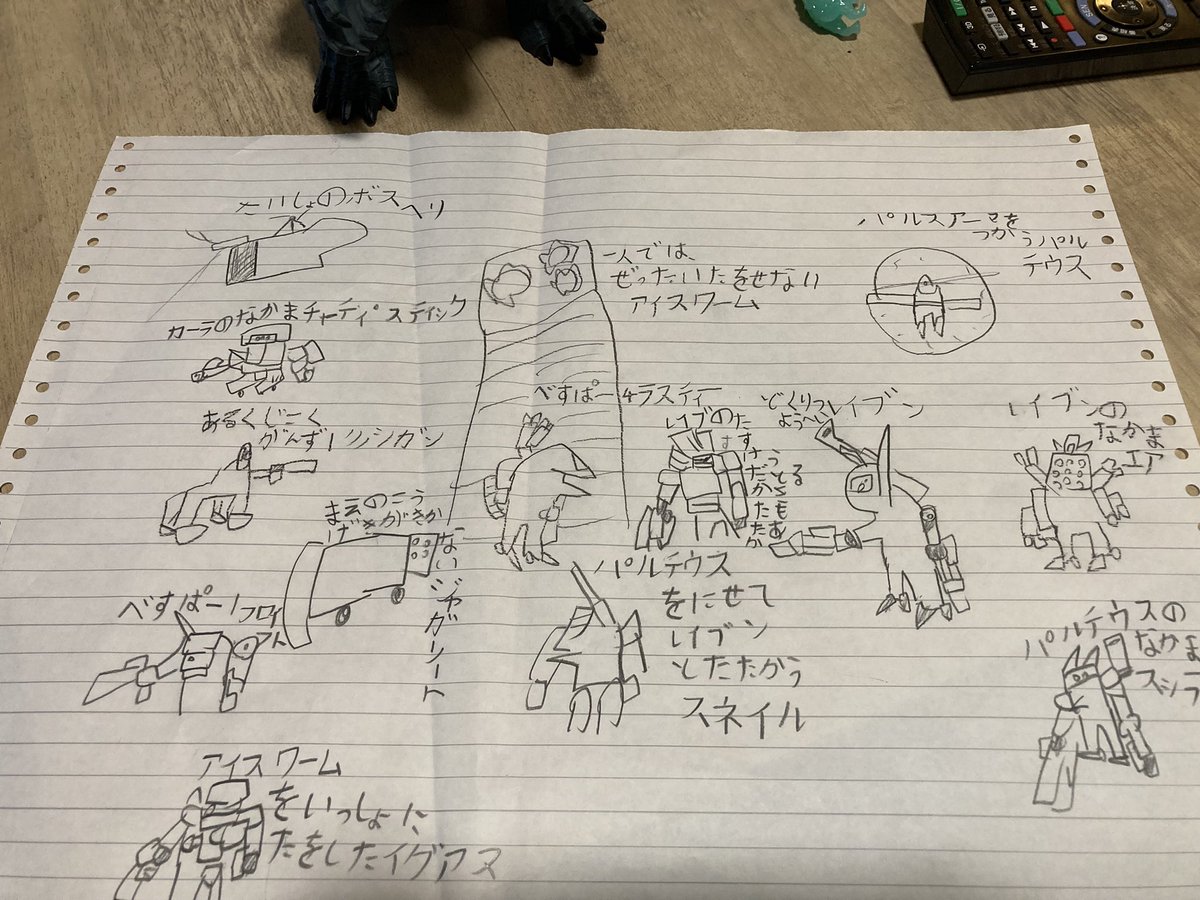 たいしょのボス
ヘリ
一人では、
ぜったいたをせない
アイスワーム
パルスアーマを
つかうパル
テウス
カーラのなかまチャーディスティック
あるくじごく
がんずリッシガン
べすぱー4ラスティー
レイブのた
すけ
どくりつ
ようへい
レイブン
レイブンの
なかま
エア
まえのこう
げきがきか
ないジャガーノート
べすぱー1フロイト
パルテウス
をにせて
レイブン
とたたかう
スネイル
パルテウスの
なかま
スシラ
アイスワーム
をいっしょに
たをしたイグアス